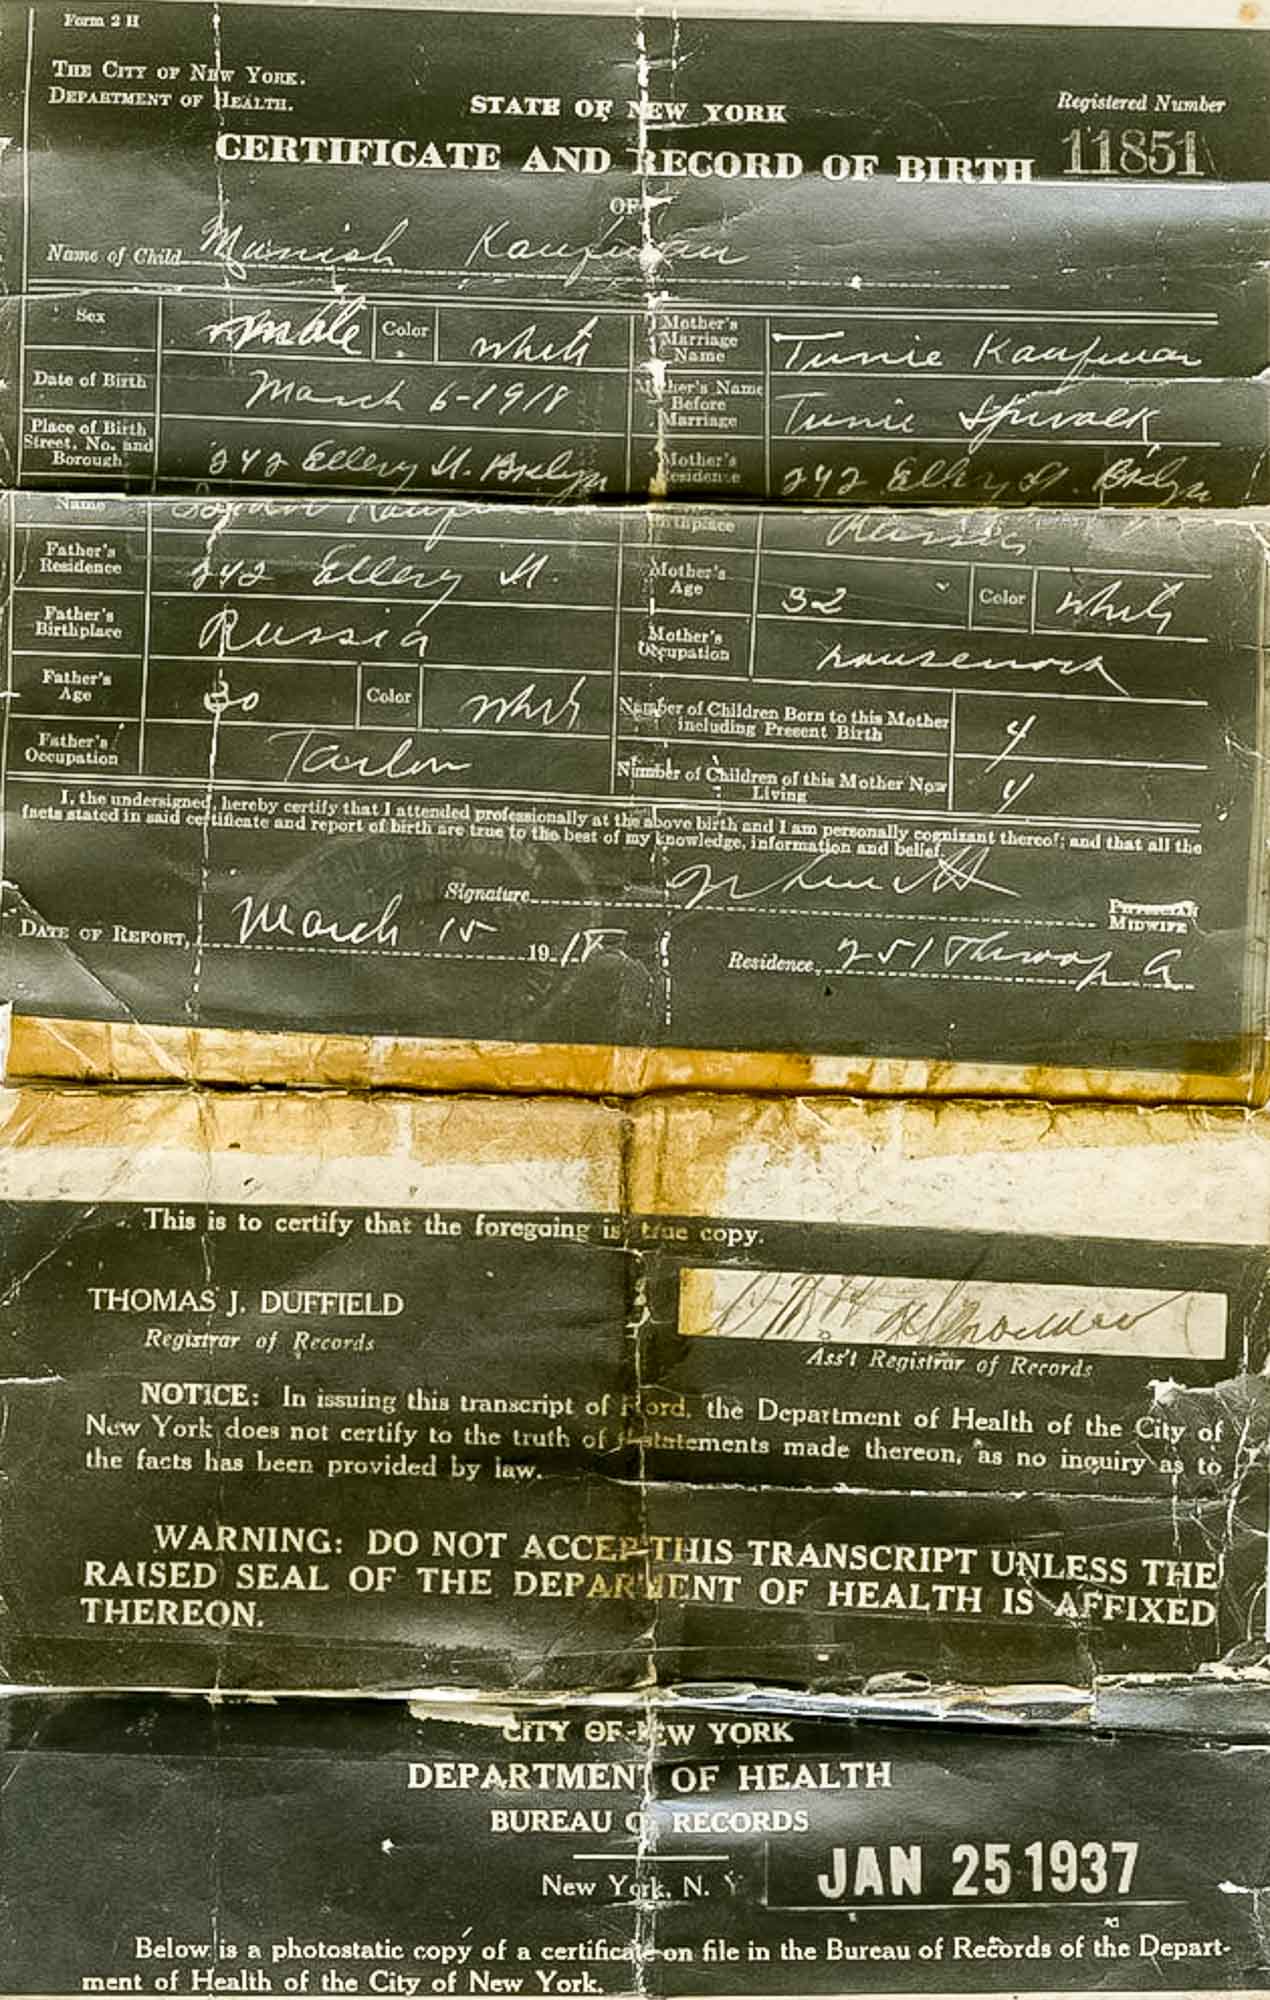 Form 2 H
THE CITY OF NEW YORK.
DEPARTMENT OF HEALTH.
STATE OF NEW YORK
Registered Number
CERTIFICATE AND RECORD OF BIRTH
11851
OF
Name of Child Munish Kaufman
Sex male Color white
Mother's Marriage Name Tunie Kaufman
Date of Birth March 6-1918
Mother's Name Before Marriage Tunie Spivalk
Place of Birth Street, No. and Borough 242 Ellery St. Bklyn
Mother's Residence 242 Ellery St. Bklyn
Name Kaufman
Birthplace Russia
Father's Residence 242 Ellery St.
Mother's Age 32 Color white
Father's Birthplace Russia
Mother's Occupation housework
Father's Age 30 Color white
Number of Children Born to this Mother including Present Birth 4
Father's Occupation Tailor
Number of Children of this Mother Now Living 4
I, the undersigned, hereby certify that I attended professionally at the above birth and I am personally cognizant thereof; and that all the
facts stated in said certificate and report of birth are true to the best of my knowledge, information and belief.
Signature
PHYSICIAN
MIDWIFE
DATE OF REPORT, March 15 1918
Residence, 251 Throop A
This is to certify that the foregoing is true copy.
THOMAS J. DUFFIELD
Registrar of Records
Ass't Registrar of Records
NOTICE: In issuing this transcript of record, the Department of Health of the City of
New York does not certify to the truth of statements made thereon, as no inquiry as to
the facts has been provided by law.
WARNING: DO NOT ACCEPT THIS TRANSCRIPT UNLESS THE
RAISED SEAL OF THE DEPARTMENT OF HEALTH IS AFFIXED
THEREON.
CITY OF NEW YORK
DEPARTMENT OF HEALTH
BUREAU OF RECORDS
New York, N. Y
JAN 25 1937
Below is a photostatic copy of a certificate on file in the Bureau of Records of the Depart-
ment of Health of the City of New York.